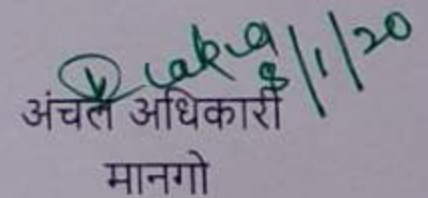 8/1/20
अंचल अधिकारी
मानगो